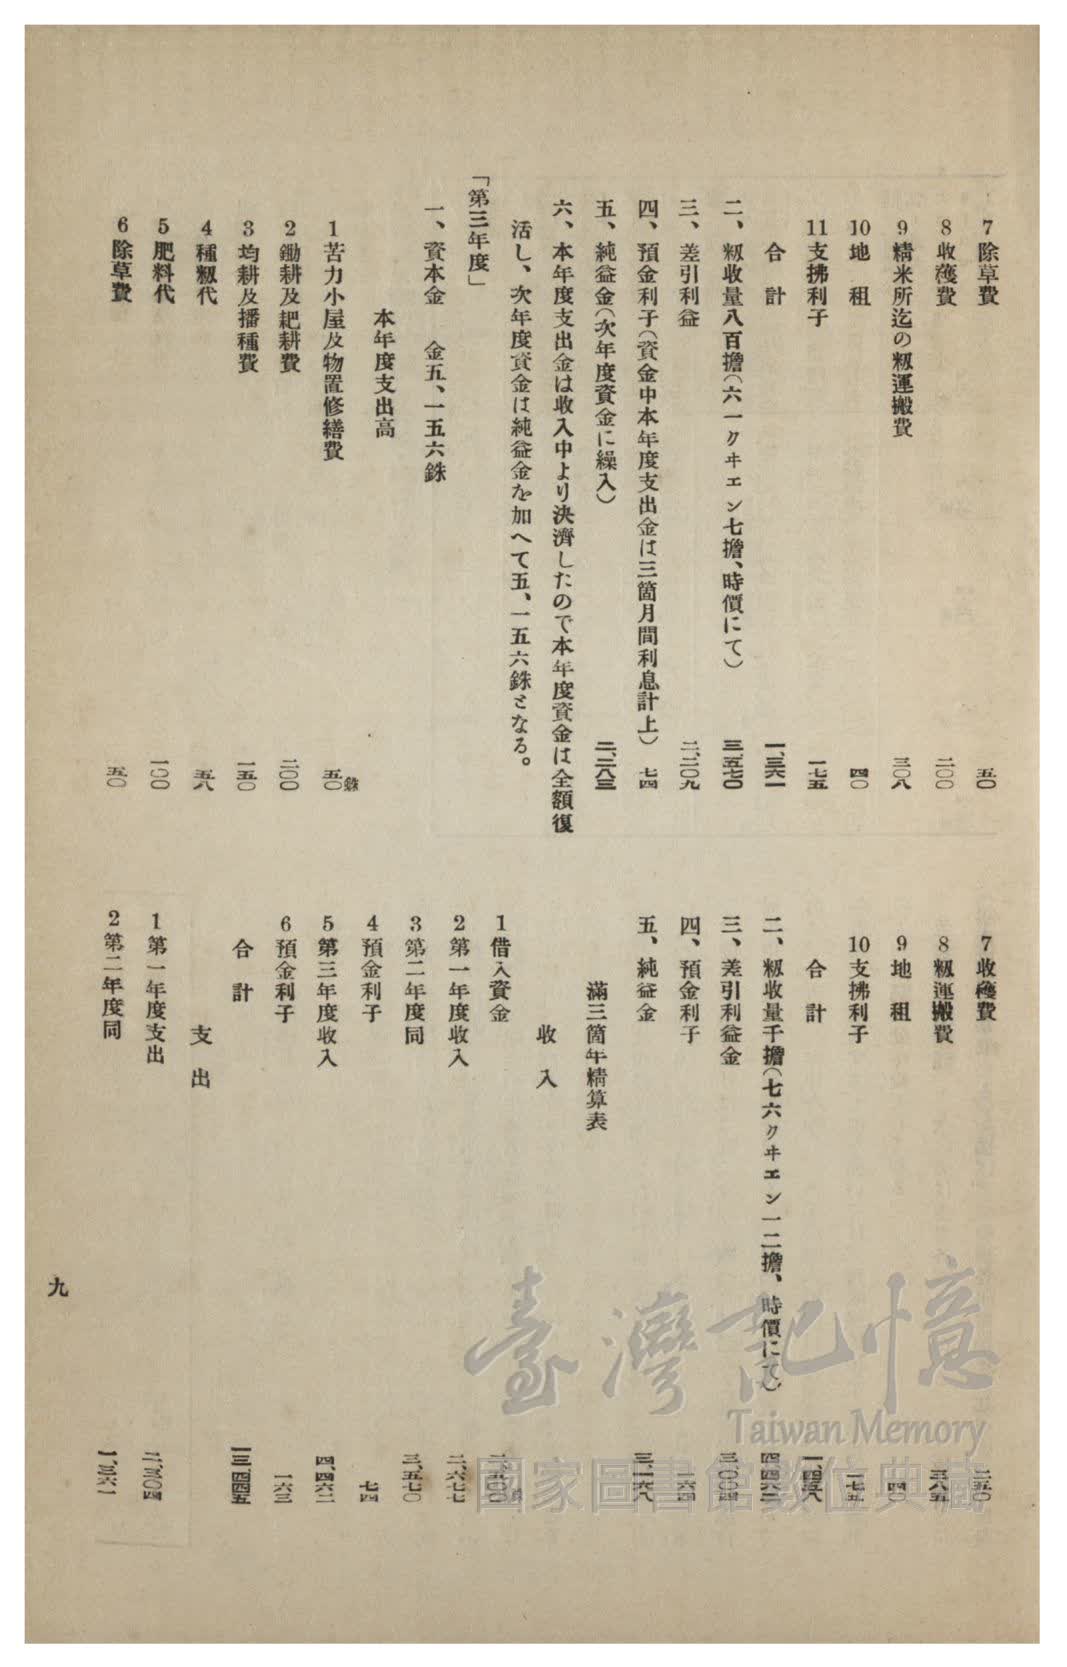 7 除草費 五〇
8 收穫費 二〇〇
9 精米所迄の籾運搬費 三〇八
10 地　租 四〇
11 支拂利子 一七五
合　計 一、三六一
二、籾收量八百擔(六一クヰエン七擔、時價にて) 三、五七〇
三、差引利益 二、二〇九
四、預金利子(資金中本年度支出金は三箇月間利息計上) 七四
五、純益金(次年度資金に繰入) 二、二八三
六、本年度支出金は收入中より決濟したので本年度資金は全額復
活し、次年度資金は純益金を加へて五、一五六銖となる。
「第三年度」
一、資本金　金五、一五六銖
本年度支出高
銖
1 苦力小屋及物置修繕費 五〇
2 鋤耕及耙耕費 二〇〇
3 均耕及播種費 一五〇
4 種籾代 五八
5 肥料代 一〇〇
6 除草費 五〇
7 收穫費 二五〇
8 籾運搬費 三八五
9 地　租 四〇
10 支拂利子 一七五
合　計 一、四五八
二、籾收量千擔(七六クヰエン一二擔、時價にて) 四、四六二
三、差引利益金 三、〇〇四
四、預金利子 一六四
五、純益金 三、一六八
滿三箇年精算表
收　入
銖
1 借入資金 二、五〇〇
2 第一年度收入 二、六七七
3 第二年度同 三、五七〇
4 預金利子 七四
5 第三年度收入 四、四六二
6 預金利子 一六三
合　計 一三、四四五
支　出
1 第一年度支出 二、三〇四
2 第二年度同 一、三六一
九
臺灣記憶
Taiwan Memory
國家圖書館數位典藏